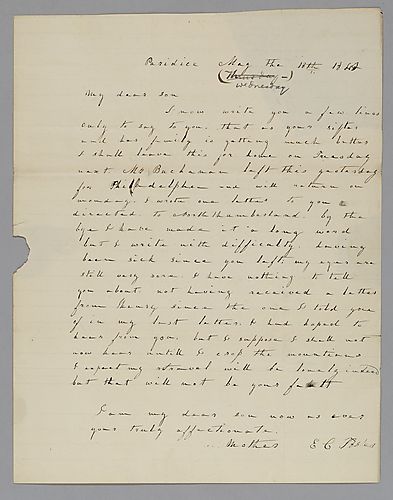 Paridice May the 18th
(Thursday)
Wednesday
My dear son
I now write you a few lines
only to say to you, that as your sister
and her family is getting much better
I shall leave this for home on Tuesday
next Mr Buchanan left this yesterday
for Philadelphea and will return on
monday. I wrote one letter to you
directed to Northumberland. by the
bye I have made it a long word
but I write with difficulty. having
been sick since you left, my eyes are
still very sore. I have nothing to tell
you about not having received a letter
from Henry since the one I told you
of in my last letter. I had hoped to
hear from you. but I suppose I shall not
now hear untill I crop the mountians
I expect my retrawal will be lonely indeed
but that will not be your fault
I am my dear son now as ever
your truly affectionate.
Mother E C